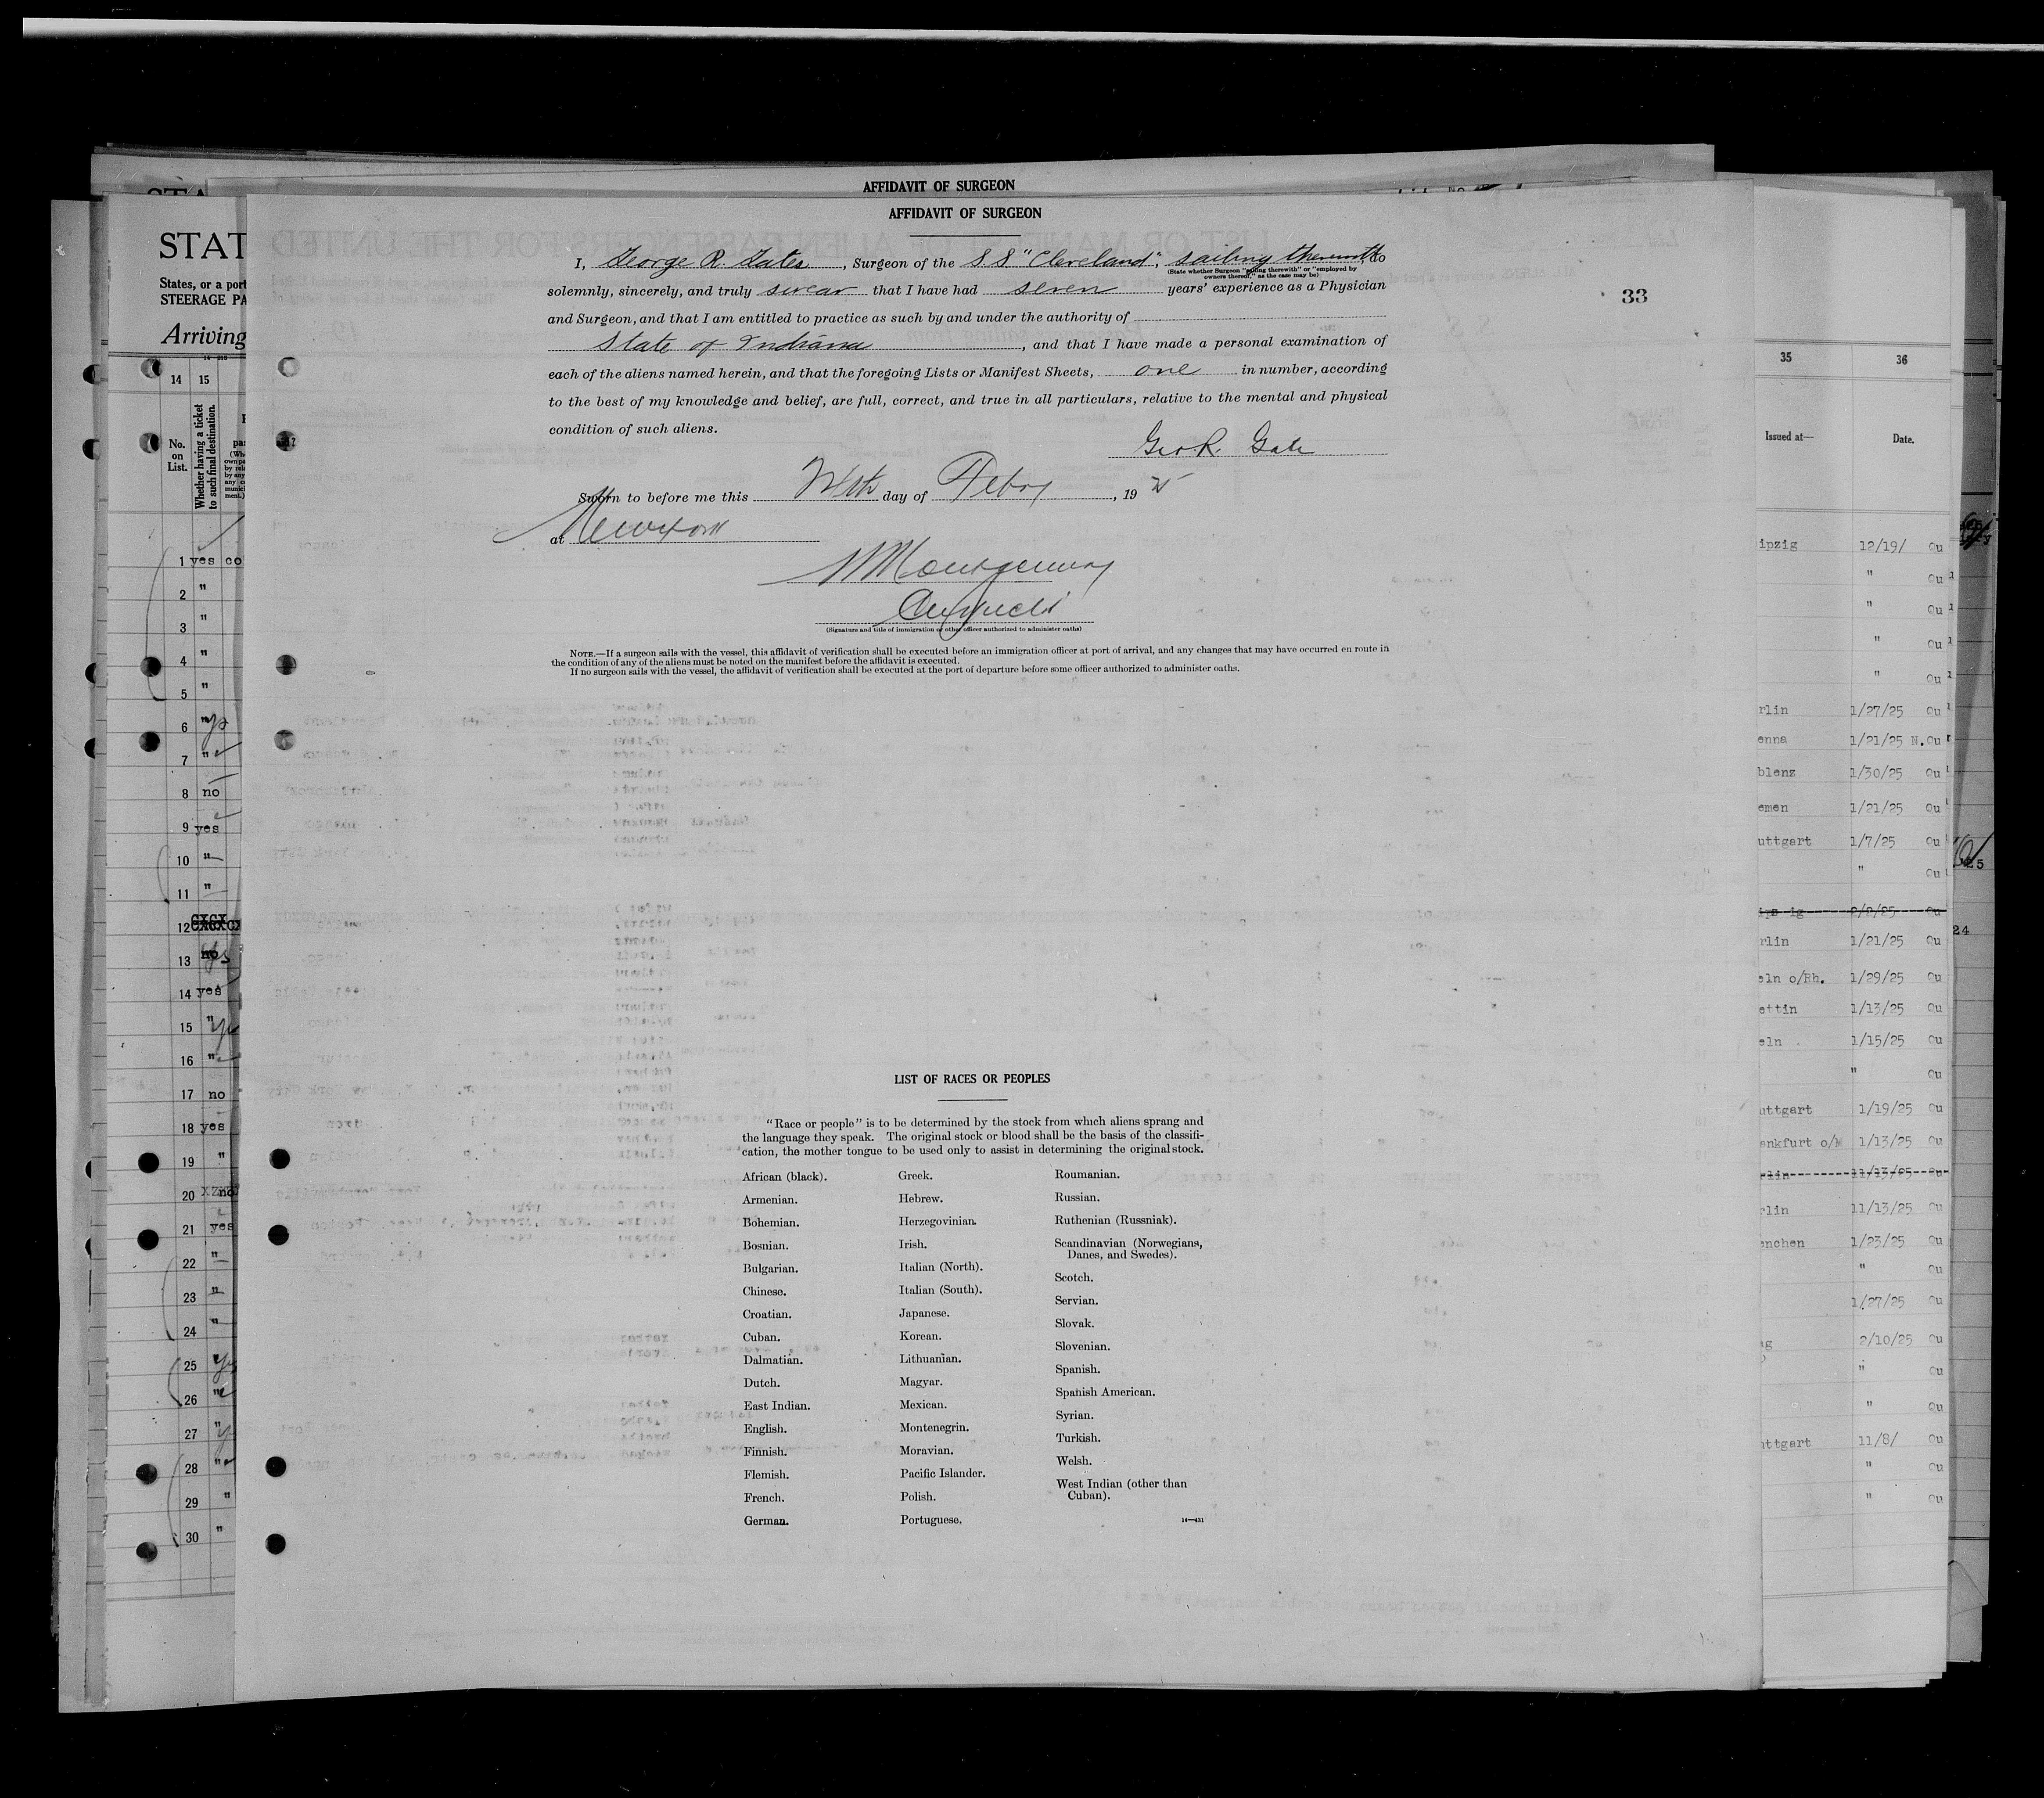 AFFIDAVIT OF SURGEON
AFFIDAVIT OF SURGEON
I, George R. Gates, Surgeon of the S S "Cleveland", sailing therewith do
(State whether Surgeon "sailing therewith" or "employed by
owners thereof," as the case may be)
solemnly, sincerely, and truly swear that I have had seven years' experience as a Physician
and Surgeon, and that I am entitled to practice as such by and under the authority of
State of Indiana, and that I have made a personal examination of
each of the aliens named herein, and that the foregoing Lists or Manifest Sheets, one in number, according
to the best of my knowledge and belief, are full, correct, and true in all particulars, relative to the mental and physical
condition of such aliens.
Geo R. Gate
Sworn to before me this day of Febry, 19 25
at New York
Montgomery
(Signature and title of immigration or other officer authorized to administer oaths)
NOTE.—If a surgeon sails with the vessel, this affidavit of verification shall be executed before an immigration officer at port of arrival, and any changes that may have occurred en route in
the condition of any of the aliens must be noted on the manifest before the affidavit is executed.
If no surgeon sails with the vessel, the affidavit of verification shall be executed at the port of departure before some officer authorized to administer oaths.
33
LIST OF RACES OR PEOPLES
"Race or people" is to be determined by the stock from which aliens sprang and
the language they speak. The original stock or blood shall be the basis of the classifi-
cation, the mother tongue to be used only to assist in determining the original stock.
African (black).
Armenian.
Bohemian.
Bosnian.
Bulgarian.
Chinese.
Croatian.
Cuban.
Dalmatian.
Dutch.
East Indian.
English.
Finnish.
Flemish.
French.
German.
Greek.
Hebrew.
Herzegovinian.
Irish.
Italian (North).
Italian (South).
Japanese.
Korean.
Lithuanian.
Magyar.
Mexican.
Montenegrin.
Moravian.
Pacific Islander.
Polish.
Portuguese.
Roumanian.
Russian.
Ruthenian (Russniak).
Scandinavian (Norwegians,
Danes, and Swedes).
Scotch.
Servian.
Slovak.
Slovenian.
Spanish.
Spanish American.
Syrian.
Turkish.
Welsh.
West Indian (other than
Cuban).
14—431
STAT
States, or a port
STEERAGE PA
Arriving
14 15
No.
on
List.
Whether having a ticket
to such final destination.
1 yes co
2 "
3 "
4 "
5 "
6 " yes
7 "
8 no
9 yes
10 "
11 "
12
13 no yes
14 yes
15 "
16 "
17 no
18 yes
19 "
20 no
21 yes
22 "
23 "
24 "
25 "
26 "
27 "
28 "
29 "
30 "
35 36
Issued at— Date.
ipzig 12/19/ Qu
" Qu
" Qu
" Qu
" Qu
rlin 1/27/25 Qu
enna 1/21/25 N.Qu
blenz 1/30/25 Qu
emen 1/21/25 Qu
uttgart 1/7/25 Qu
" Qu
2/2/25 Qu
rlin 1/21/25 Qu
eln o/Rh. 1/29/25 Qu
ettin 1/13/25 Qu
eln 1/15/25 Qu
" Qu
uttgart 1/19/25 Qu
ankfurt o/M 1/13/25 Qu
rlin 11/13/25 Qu
rlin 11/13/25 Qu
enchen 1/23/25 Qu
" Qu
1/27/25 Qu
g 2/10/25 Qu
" Qu
" Qu
uttgart 11/8/ Qu
" Qu
" Qu